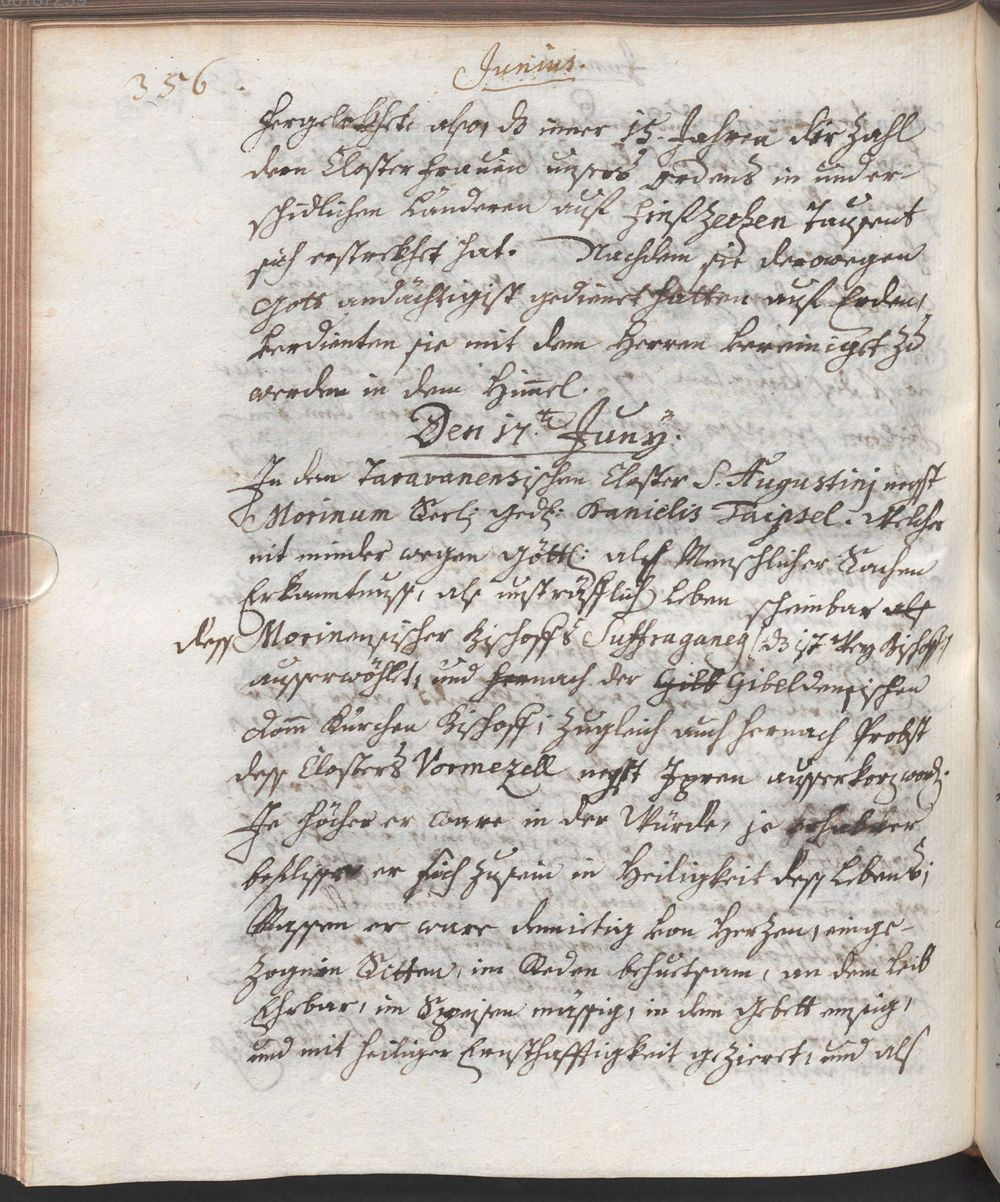 356.
Junius.
hergelokhet also, dz inner 15. Jahren der Zahl
dern Closter frauen unsers Ordens in under-
schidlichen Länderen auf Tausent
sich erstrekhet hat. Nachdem sie derowegen
Gott andächtigist gedienet hatten auf Erden,
verdienten sie mit dem Herren vereiniget zu
werden in dem Himel.
Den 17.te Juny.
In dem Taravanensischen Closter S. Augustinj negst
Morinum Seel: ged: Danielis Taipsel. Welcher
nit minder wegen göttl: als Menschlicher Sachen
Erkanntnuss, als unsträfflich Leben scheinbar als
dess Morinensischer Bischoffs Suffraganeg (dz ist Wey Bischoff)
ausserwöhlt, und hernach der Gilb Gibeldensischen
dom Kürchen Bischoff; Zugleich auch hernach Probst
dess Closters Vormezell negst Ipren ausserkorn word:
Je höcher er ware in der Würde, je
beflisse er sich zusein in Heiligkeit dess Lebens;
Massen er ware demietig von Herzen, einge-
zogen in Sitten, im Reden behuetsam, an dem Leib
Ehrbar, im Speisen mässig, in dem Gebett emsig,
und mit heiliger Ernsthafftigkeit gezieret, und als